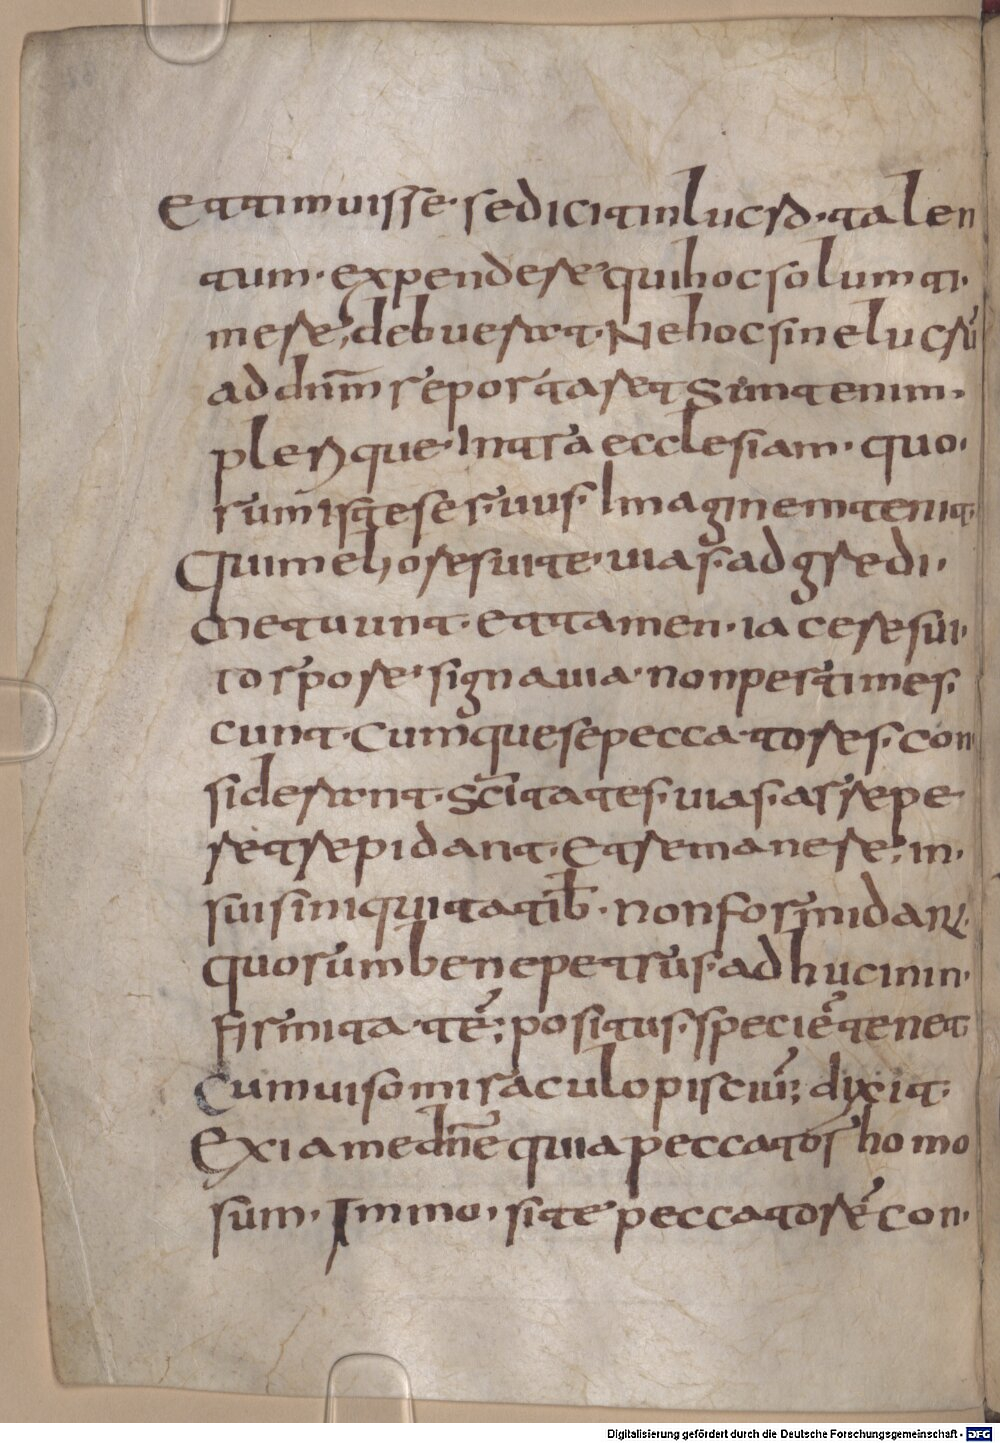 Et timuisse· se dicit in lucro· talen
tum· expendere qui hoc solum ti·
mere; debuerat· Ne hoc sine lucrū
ad dn̄m reportaret Sunt enim·
plerique· Intra ecclesiam· quo·
rum iste seruus· Imaginem tenit·
Qui meliores uite· uias· adgredi·
Metuunt· et tamen· iacere sui·
torpore· signauia· non pertimes·
cunt· Cumque se peccatores· con
siderant· sc̄itates· uias· arrepe
re trepidant· Et remanere; in·
suis iniquitatib̄· non formidant·
quorum bene petrus· adhuc in in·
firmitatē; positus· speciē tenet
Cum uiso miraculo pisciū; dixit·
Exi a me dn̄e quia peccator homo
sum· Immo· si te peccatorē con·
Digitalisierung gefördert durch die Deutsche Forschungsgemeinschaft - DFG